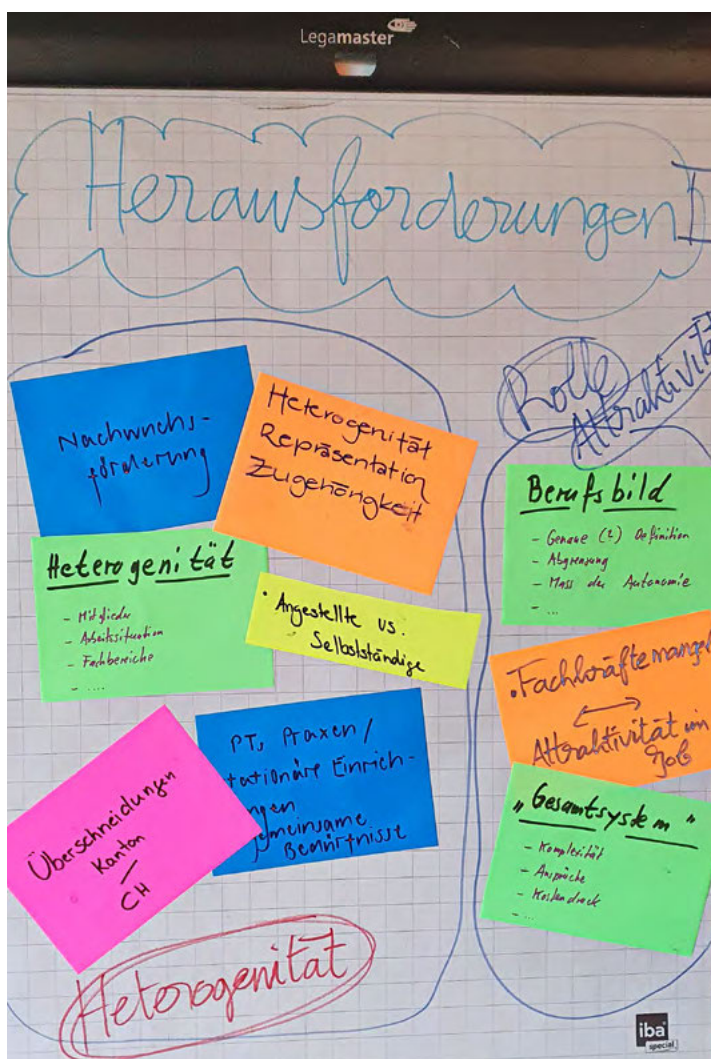 Legamaster
Herausforderungen
Nachwuchs-
förderung
Heterogenität
Repräsentation
Zugehörigkeit
Heterogenität
- Mitglieder
- Arbeitssituation
- Fachbereiche
- ....
• Angestellte vs.
Selbstständige
PT, Praxen /
tationäre Einrich-
ungen
gemeinsame
Bedürfnisse
Überschneidungen
Kanton
/
CH
Heterogenität
Rolle
Attraktivität
Berufsbild
- Genaue (?) Definition
- Abgrenzung
- Mass der Autonomie
- ...
• Fachkräftemangel
Attraktivität im
Job
„Gesamtsystem"
- Komplexität
- Ansprüche
- Kostendruck
- ...
iba
special